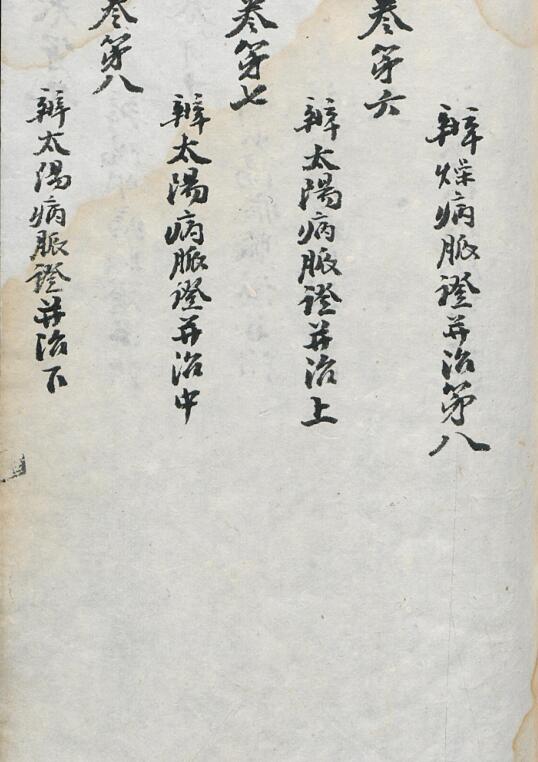 辨燥病脈證并治第八
卷第六
辨太陽病脈證并治上
卷第七
辨太陽病脈證并治中
卷第八
辨太陽病脈證并治下